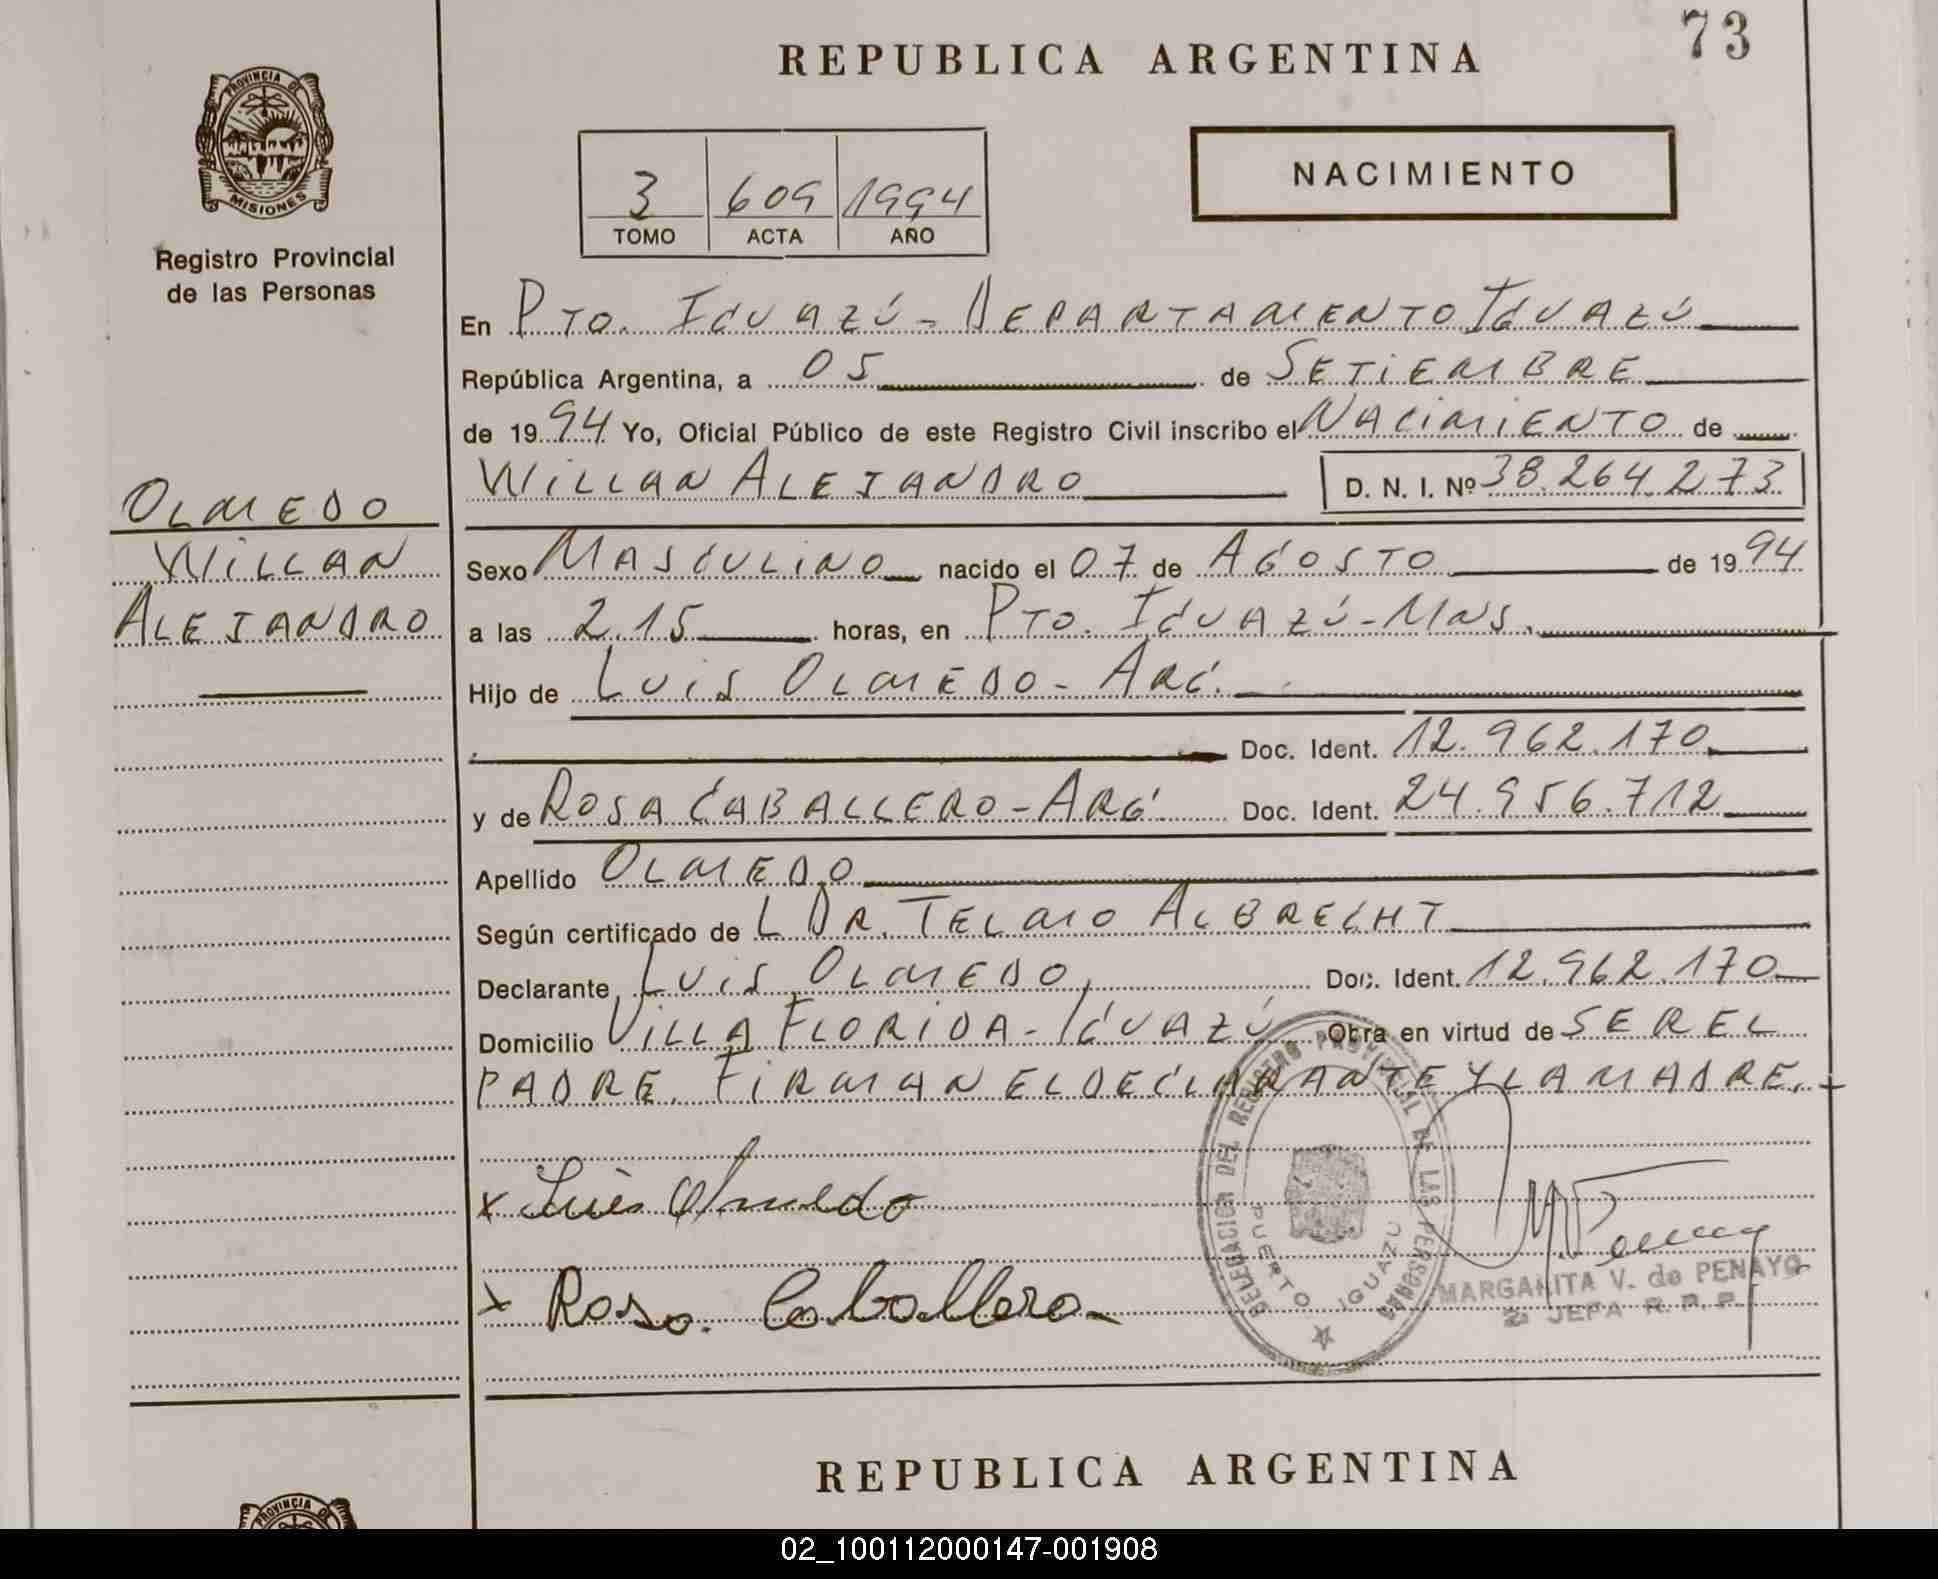 73
REPUBLICA ARGENTINA
PROVINCIA DE
MISIONES
Registro Provincial
de las Personas
NACIMIENTO
3 609 1994
TOMO ACTA AÑO
En PTO. IGUAZÚ - DEPARTAMENTO IGUAZÚ
República Argentina, a 05 de SETIEMBRE
de 1994 Yo, Oficial Público de este Registro Civil inscribo el NACIMIENTO de
WILLAN ALEJANDRO D. N. I. Nº 38.264.273
OLMEDO
WILLAN
ALEJANDRO
Sexo MASCULINO nacido el 07 de AGOSTO de 1994
a las 2.15 horas, en PTO. IGUAZÚ - MNS.
Hijo de LUIS OLMEDO - ARG.
Doc. Ident. 12.962.170
y de ROSA CABALLERO - ARG. Doc. Ident. 24.956.712
Apellido OLMEDO
Según certificado de L DR. TELMO ALBRECHT
Declarante LUIS OLMEDO Doc. Ident. 12.962.170
Domicilio VILLA FLORIDA - IGUAZÚ Obra en virtud de SER EL
PADRE. FIRMAN EL DECLARANTE Y LA MADRE.
x Luis Olmedo
x Rosa Caballero
DELEGACION DEL REGISTRO PROVINCIAL DE LAS PERSONAS
PUERTO IGUAZU
MARGARITA V. de PENAYO
2ª JEFA R. P. P.
REPUBLICA ARGENTINA
PROVINCIA DE
02_100112000147-001908